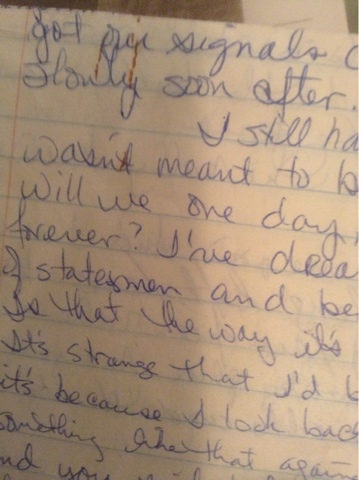 got our signals c
slowly soon after.
I still ha
wasn't meant to b
will we one day
forever? I've drea
of statesmen and be
Is that the way it's
It's strange that I'd b
it's because I look back
something like that again
and you